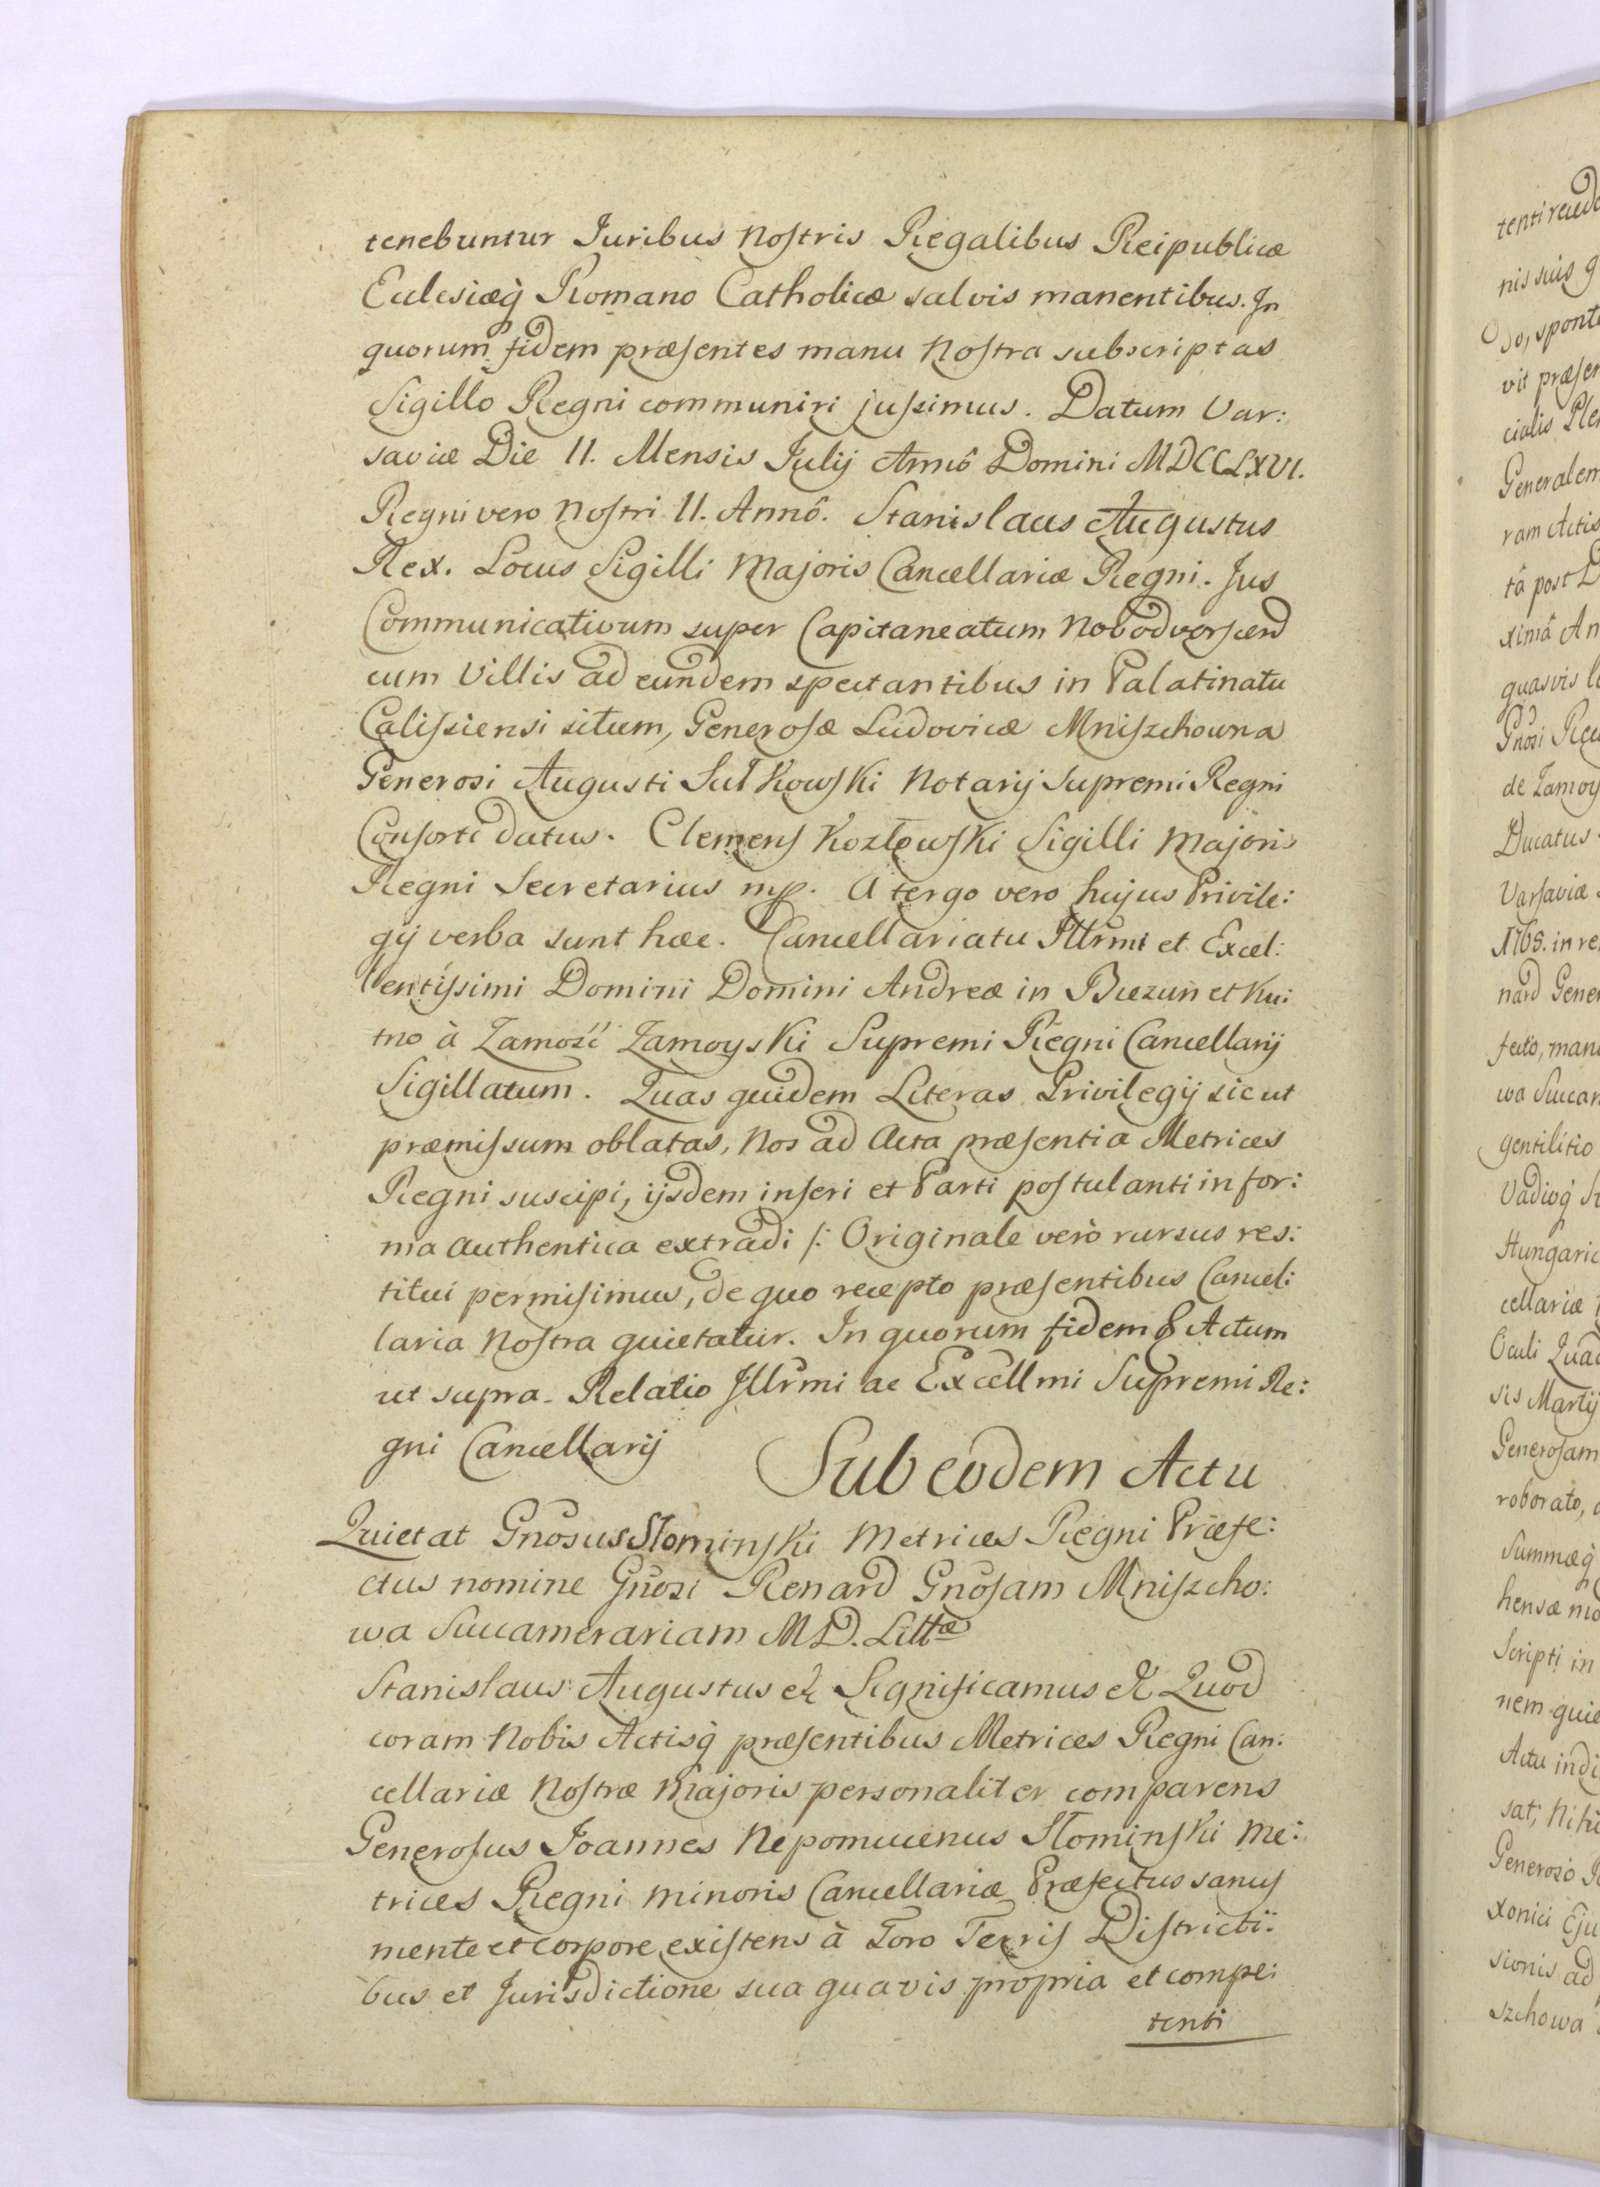 tenebuntur Juribus Nostris Regalibus Reipublicæ
Eulesiæq̃ Romano Catholicæ salvis manentibus. In
quorum fidem præsentes manu Nostra subscriptas
Sigillo Regni communiri jussimus. Datum Var:
saviæ Die 11. Mensis Julij Annô Domini MDCCLXVI.
Regni vero Nostri II. Annô. Stanislaus Augustus
Rex. Locus Sigilli Majoris Cancellariæ Regni. Jus
Communicativum super Capitaneatum
cum Villis ad eundem spectantibus in Palatinatu
Calissiensi situm, Generosæ Ludovicæ Mniszchowna
Generosi Augusti Sułkowski Notarij Supremi Regni
Consorti datus. Clemens Kozłowski Sigilli Majoris
Regni Secretarius mp. A tergo vero hujus Privile:
gij verba sunt hæc. Cancellariatu Illrmi et Excel:
lentissimi Domini Domini Andreæ in Biezuń et Ku:
tno à Zamość Zamoyski Supremi Regni Cancellarij
Sigillatum. Quas quidem Literas Privilegij sicut
præmissum oblatas, Nos ad Acta præsentia Metrices
Regni suscipi, ijsdem inseri et Parti postulanti in for:
ma authentica extradi /: Originale verò rursus res:
titui permisimus, de quo recepto præsentibus Cancel:
laria Nostra quietatur. In quorum fidem & Actum
ut supra. Relatio Illrmi ac Excellmi Supremi Re:
gni Cancellarij
Sub eodem Actu
Quietat Gnosus Słominski Metrices Regni Præfe:
ctus nomine Gnosi Renard Gnosam Mniszcho:
wa Succamerariam M.D. Littæ
Stanislaus Augustus & Significamus & Quod
coram Nobis Actisq̃ præsentibus Metrices Regni Can:
cellariæ Nostræ Majoris personaliter comparens
Generosus Joannes Nepomucenus Słominski Me:
trices Regni minoris Cancellariæ Præfectus sanus
mente et corpore existens à Foro Terris Districti:
bus et Jurisdictione sua quavis propria et compe:
tenti